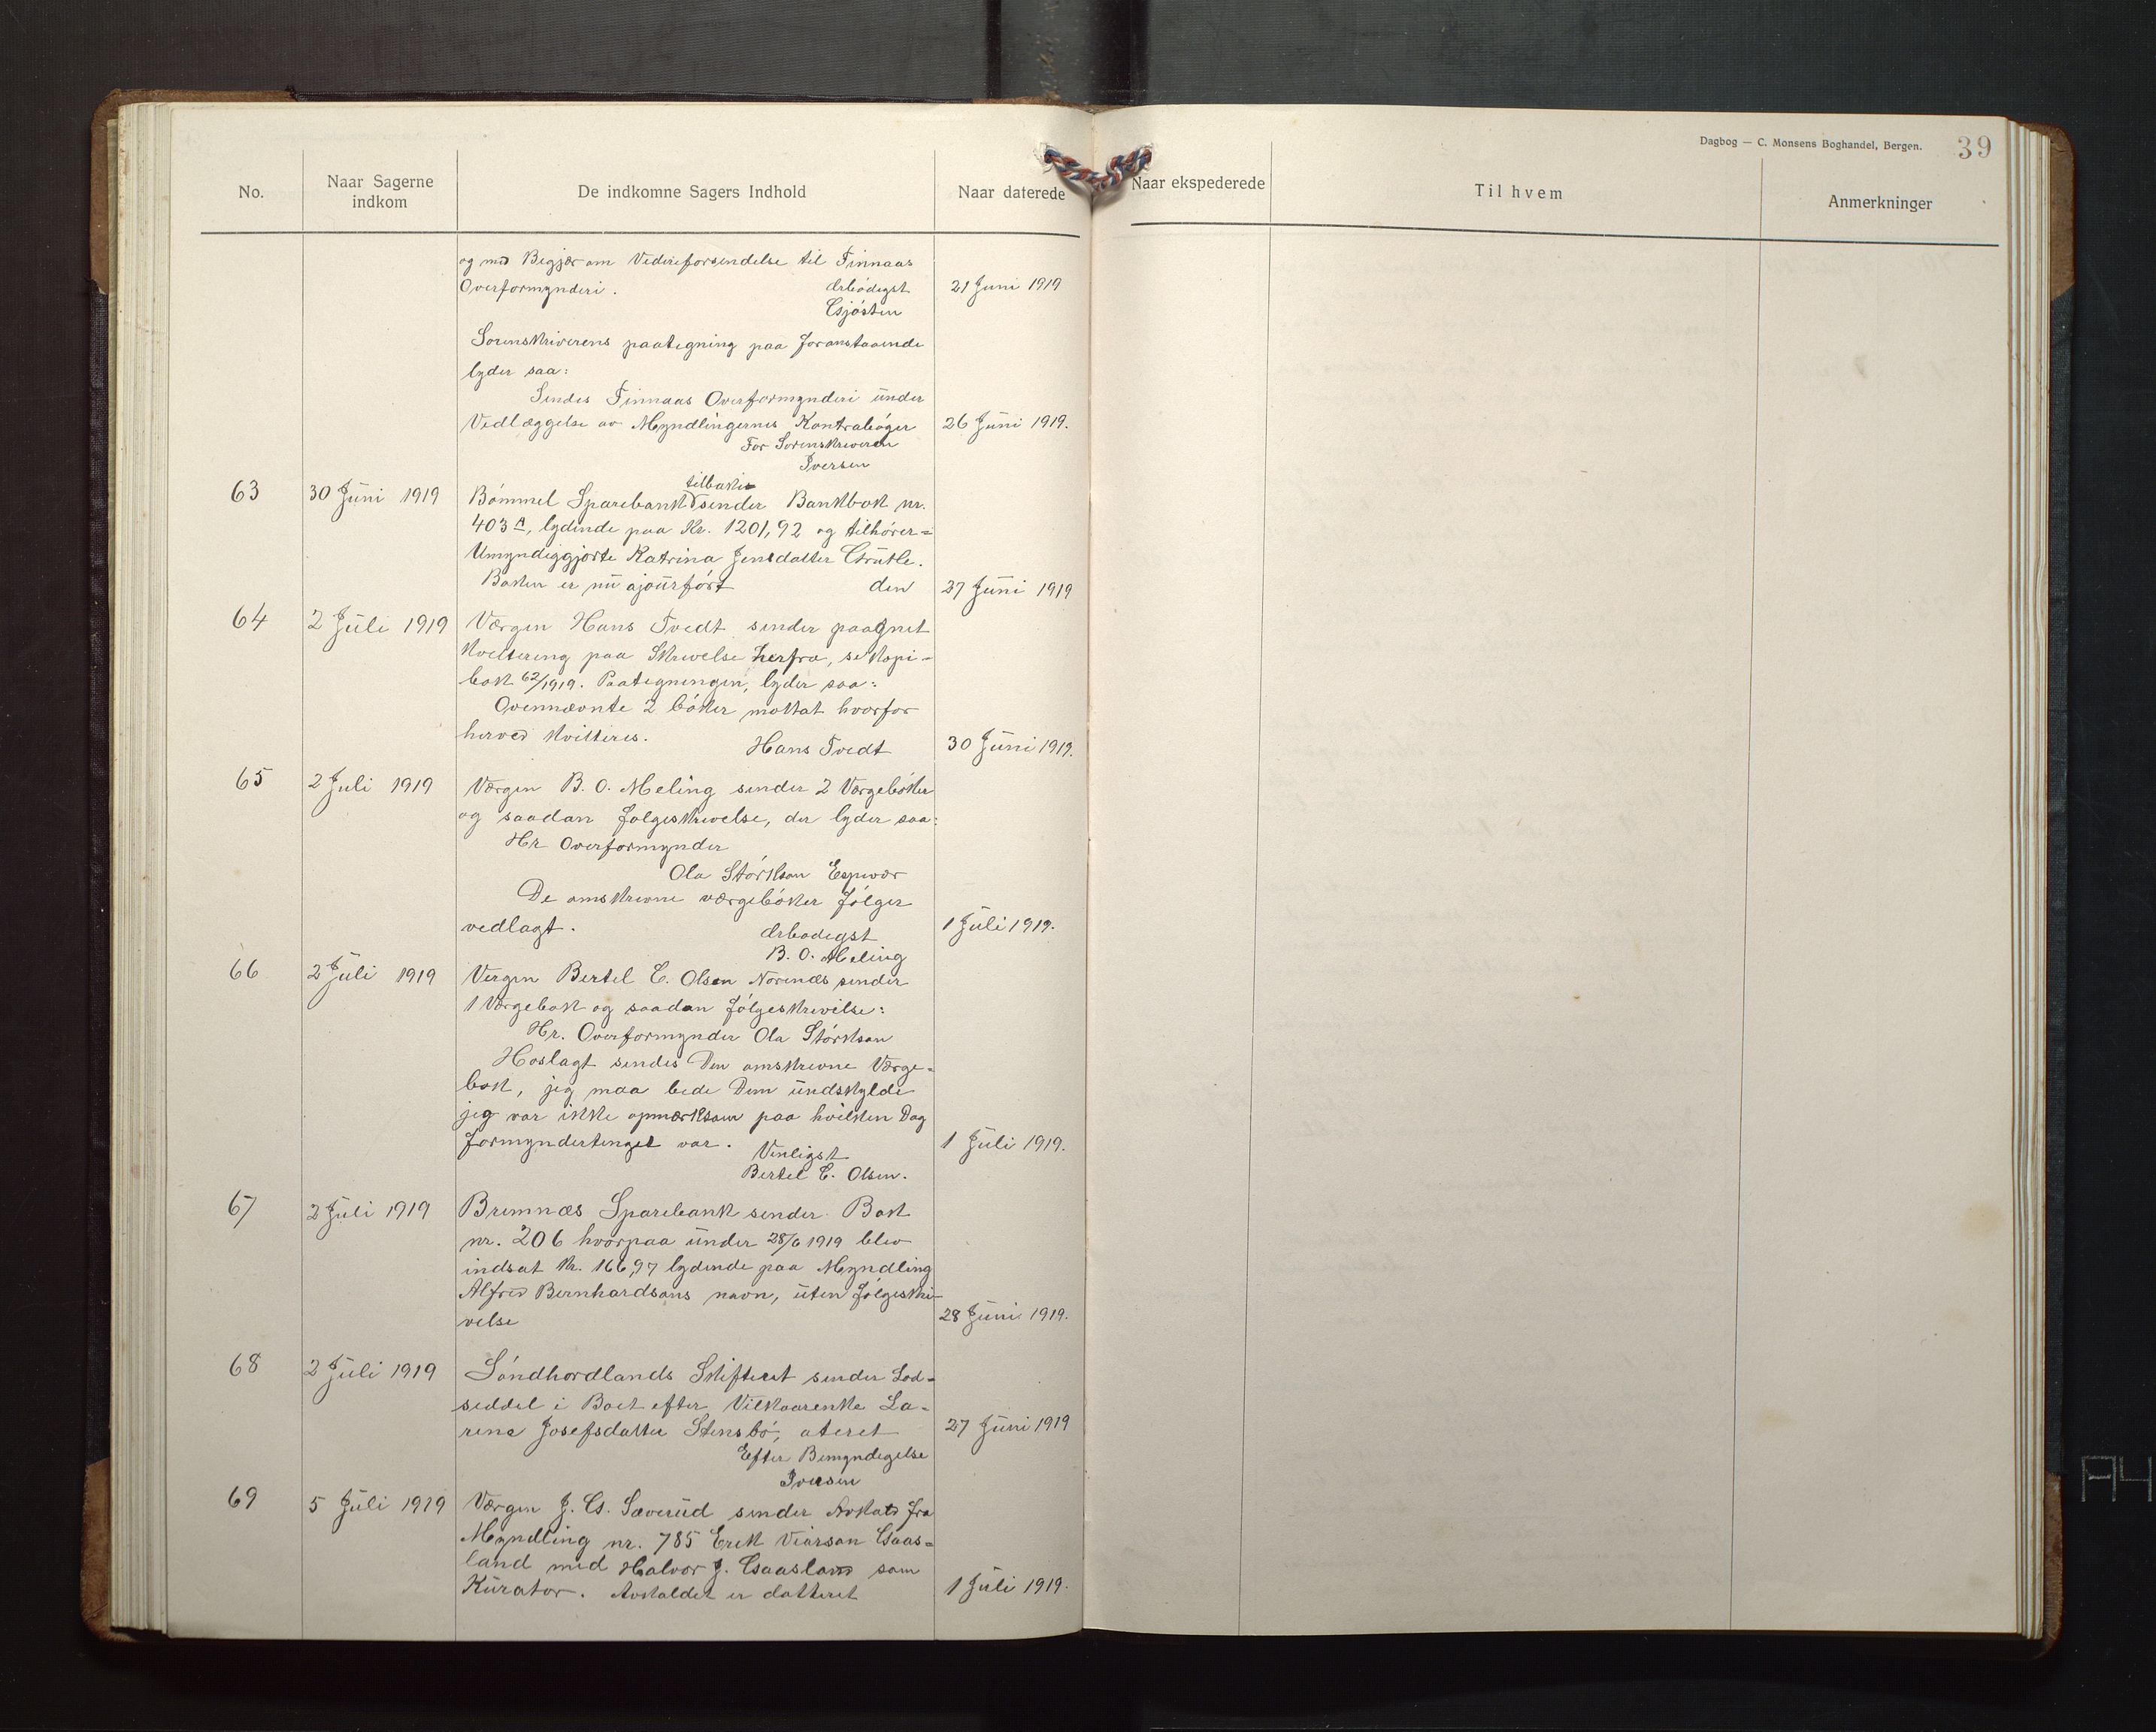 Dagbog — C. Monsens Boghandel, Bergen. 39
No. Naar Sagerne indkom De indkomne Sagers Indhold Naar daterede Naar ekspederede Til hvem Anmerkninger
og med Begjær om Videreforsendelse til Finnaas
Overformynderi. Ærbødigst 21 Juni 1919
Gjøsten
Sorenskriverens paategning paa foranstaaende
lyder saa:
Sendes Finnaas Overformynderi under
Vedlæggelse av Myndlingernes Kontrabøger 26 Juni 1919.
For Sorenskriveren
Iversen
tilbake
63 30 Juni 1919 Bømmel Sparebank sender Bankbok nr.
403 A, lydende paa Kr. 1201,92 og tilhører-
Umyndiggjorte Katrina Jensdatter Grutle.
Boken er nu ajourført den 27 Juni 1919
64 2 Juli 1919 Værgen Hans Tvedt sender paategnet
Kvittering paa Skrivelse herfra, se Kopi-
bok 62/1919. Paategningen, lyder saa:
Ovennævnte 2 bøker mottat hvorfor
herved kvitteres. Hans Tvedt 30 Juni 1919.
65 2 Juli 1919 Værgen B. O. Meling sender 2 Værgebøker
og saadan følgeskrivelse, der lyder saa:
Hr Overformynder
Ola Størkson Espevær
De omskrevne værgebøker følger
vedlagt. Ærbødigst 1 Juli 1919.
B. O. Meling
66 2 Juli 1919 Vergen Bertel E. Olsen Norenæs sender
1 Værgebok og saadan følgeskrivelse:
Hr. Overformynder Ola Størkson
Hoslagt sendes Den omskrevne Værge-
bok, jeg maa bede Dem undskylde
jeg var ikke opmerksom paa hvilken Dag
formyndertinget var. 1 Juli 1919.
Venligst
Bertel E. Olsen.
67 2 Juli 1919 Bremnæs Sparebank sender Bok
nr. 206 hvorpaa under 28/6 1919 blev
indsat Kr. 166,97 lydende paa Myndling
Alfred Bernhardsons navn, uten følgeskri-
velse 28 Juni 1919.
68 2 Juli 1919 Søndhordlands Skifteret sender Lod-
seddel i Boet efter Vilkaarenke La-
rena Josefsdatter Stensbø, dateret 27 Juni 1919
Efter Bemyndigelse
Iversen
69 5 Juli 1919 Værgen J. G. Sæverud sender Avkald fra
Myndling nr. 785 Erik Viarson Gaas-
land med Halvor J. Gaasland som
Kurator. Avkaldet er datteret 1 Juli 1919.
A4